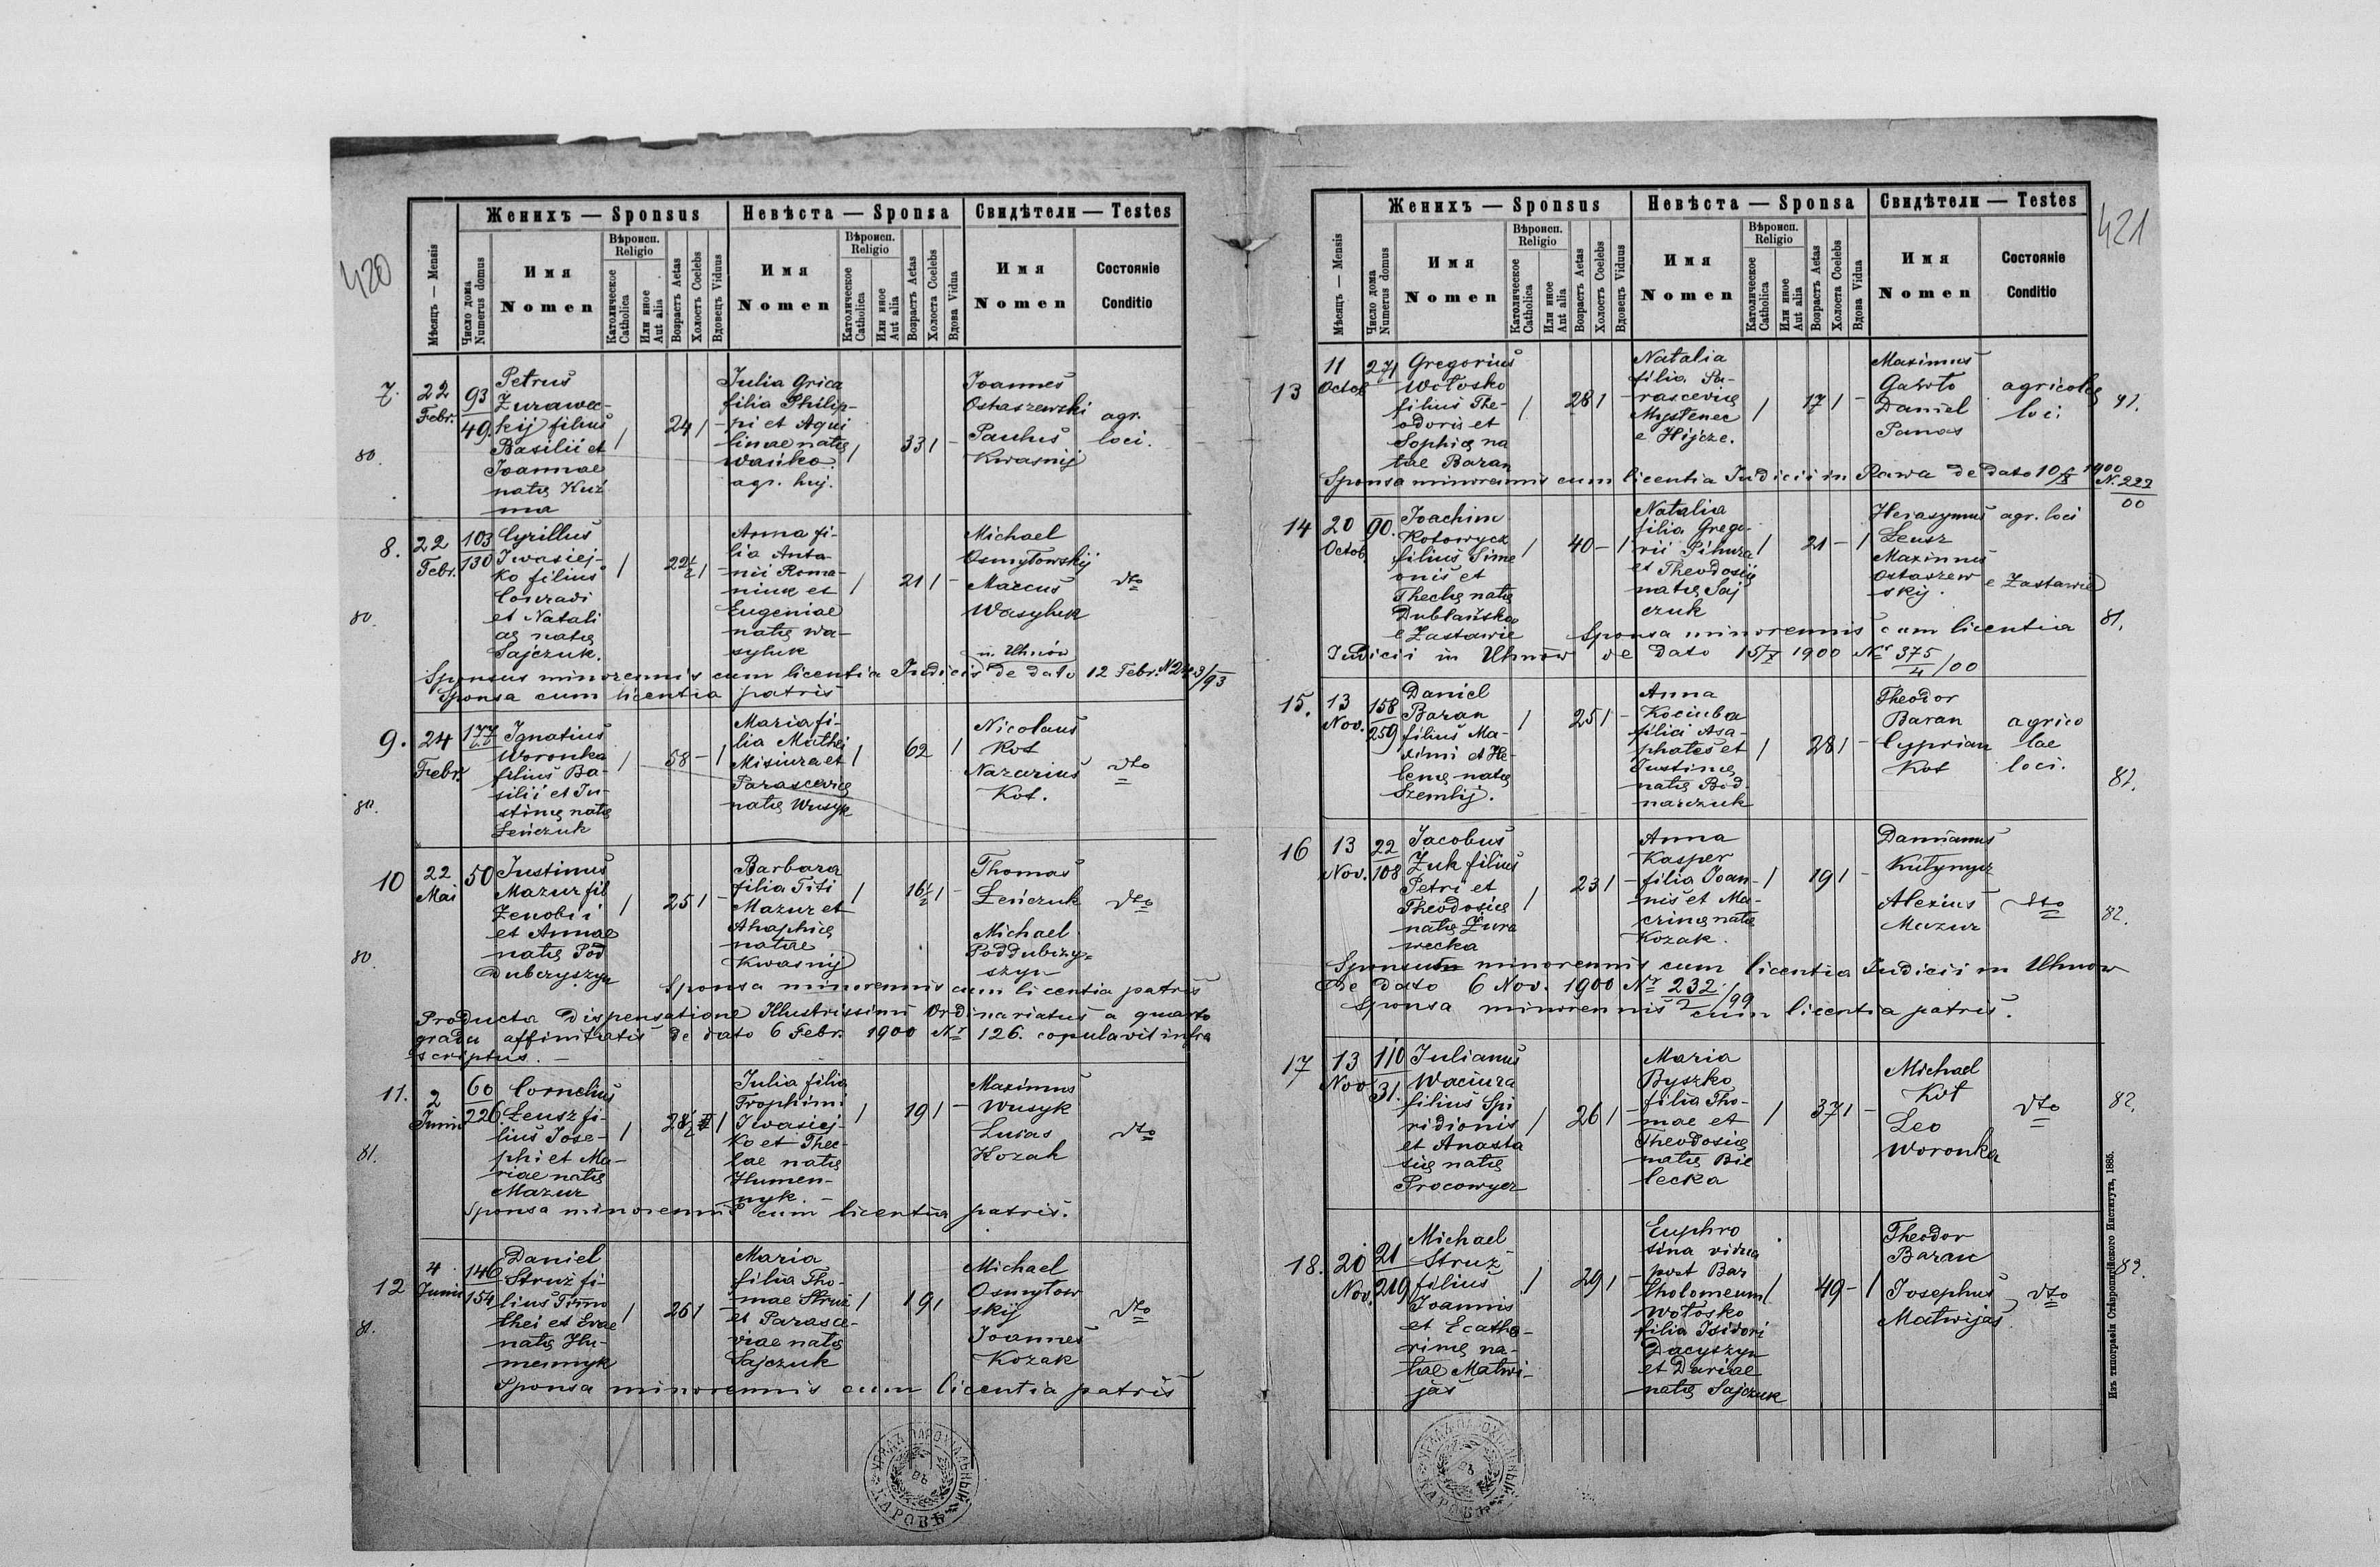 420
Женихъ — Sponsus
Невѣста — Sponsa
Свидѣтели — Testes
Мѣсяцъ — Mensis
Число дома
Numerus domus
Имя
Nomen
Вѣроисп.
Religio
Католическое
Catholica
Или иное
Aut alia
Возрастъ Aetas
Холостъ Coelebs
Вдовецъ Viduus
Имя
Nomen
Вѣроисп.
Religio
Католическое
Catholica
Или иное
Aut alia
Возрастъ Aetas
Холоста Coelebs
Вдова Vidua
Имя
Nomen
Состояніе
Conditio
7.
22
Febr.
93
49.
80.
Petrus
Żurawec-
kij filius
Basilii et
Joannae
natę Kuź
ma
1
24 1 -
Julia Grica
filia Philip-
pi et Aqui
linae natę
Waśko.
agr. huj.
1
33 1 -
Joannes
Ostaszewski
Paulus
Kwasnij
agr.
loci.
8.
22
Febr.
103
130
80.
Cyrillus
Iwasiej-
ko filius
Conradi
et Natali
ae natę
Sajczuk.
1
22½ 1 -
Anna fi-
lia Anto-
nii Roma-
niuk et
Eugeniae
natę Wa-
syluk
1
21 1 -
Michael
Osmyłowskij
Marcus
Wasyluk
dto
in Uhnów
Sponsus minorennis cum licentia Judicii de dato 12 Febr. N 243/93
Sponsa cum licentia patris
9.
24
Febr.
177
80.
Ignatius
Woronka
filius Ba-
silii et Ju-
stinę natę
Leńczuk
1
58 - 1
Maria fi-
lia Mathei
Misiura et
Parascevię
natę Wusyk
1
62 1
Nicolaus
Kot
Nazarius
Kot.
dto
10
22
Mai
50
80.
Justinus
Mazur fil
Zenobii
et Annae
natę Pod
dubczyszyn
1
25 1 -
Barbara
filia Titi
Mazur et
Ahaphię
natae
Kwasnij
1
16½ 1 -
Thomas
Leńczuk
Michael
Poddubczy-
szyn
dto
Sponsa minorennis cum licentia patris
Producta dispensatione Illustrissimi Ordinariatus a quarto
gradu affinitatis de dato 6 Febr. 1900 Nr 126. copulavit infra
scriptus. —
11.
2
Junii
60
226.
81.
Cornelius
Leusz fi-
lius Jose-
phi et Ma-
riae natę
Mazur
1
28½ 1
Julia filia
Trophimi
Iwasiej-
ko et Thec-
lae natę
Humen-
nyk. -
1
19 1 -
Maximus
Wusyk
Lucas
Kozak
dto
Sponsa minorennis cum licentia patris.
12
4
Junii
146
154
81.
Daniel
Struż fi-
lius Timo
thei et Evae
natę Hu-
mennyk
1
26 1
Maria
filia Tho-
mae Struż
et Parasce-
viae natę
Sajczuk
1
19 1
Michael
Osmyłow
skij
Joannes
Kozak
dto
Sponsa minorennis cum licentia patris
УРЯДЪ ПАРОХІАЛЬНЫЙ
ВЪ
КАРОВѢ
421
Женихъ — Sponsus
Невѣста — Sponsa
Свидѣтели — Testes
Мѣсяцъ — Mensis
Число дома
Numerus domus
Имя
Nomen
Вѣроисп.
Religio
Католическое
Catholica
Или иное
Aut alia
Возрастъ Aetas
Холостъ Coelebs
Вдовецъ Viduus
Имя
Nomen
Вѣроисп.
Religio
Католическое
Catholica
Или иное
Aut alia
Возрастъ Aetas
Холоста Coelebs
Вдова Vidua
Имя
Nomen
Состояніе
Conditio
13
11
Octob
271
Gregorius
Wołosko
filius The-
odoris et
Sophię na
tae Baran
1
28 1
Natalia
filia Pa-
rascevię
Mysłenec
e Hijcze.
1
17 1 -
Maximus
Gawło
Daniel
Panas
agricolę
loci
Sponsa minorennis cum licentia Judicii in Rawa de dato 10/X 1900
N. 222
00
14
20
Octob.
90.
Joachim
Kotowycz
filius Sime
onis et
Theclę natę
Dublańska
e Zastawie
1
40 - 1
Natalia
filia Grego-
rii Pihura
et Theodosię
natę Saj
czuk
1
21 - 1
Herasymus
Leusz
Maximus
Ostaszew
skij.
agr. loci
e Zastawie
81.
Sponsa minorennis cum licentia
Judicii in Uhnow de dato 15/X 1900 Nr 375
4/00
15.
13
Nov.
158
259
Daniel
Baran
filius Ma-
ximi et He-
lenę natę
Szemlij.
1
25 1 -
Anna
Kociuba
filia Asa-
phates et
Justinę
natę Bod-
narczuk
1
28 1 -
Theodor
Baran
Cyprian
Kot
agrico
lae
loci.
82.
16
13
Nov.
22
108
Jacobus
Żuk filius
Petri et
Theodosię
natę Żura
wecka
1
23 1 -
Anna
Kasper
filia Joan-
nis et Ma-
crinę natę
Kozak.
1
19 1 -
Damianus
Kułynycz
Alexius
Mazur
dto
82.
Sponsus minorennis cum licentia Judicii in Uhnow
de dato 6 Nov. 1900 Nr 232
2/99
Sponsa minorennis cum licentia patris.
17
13
Nov
110
31.
Julianus
Waciura
filius Spi
ridionis
et Anasta
się natę
Procowycz
1
26 1 -
Maria
Byszko
filia Tho-
mae et
Theodosię
natę Bie
lecka
1
37 1 -
Michael
Kot
Leo
Woronka
dto
82.
18.
20
Nov.
21
219
Michael
Struż
filius
Joannis
et Ecatha-
rinę na-
tae Matwi-
jas
1
29 1 -
Euphro
sina vidua
post Bar
tholomeum
Wołosko
filia Isidori
Dacyszyn
et Dariae
natę Sajczuk
1
49 - 1
Theodor
Baran
Josephus
Matwijas
dto
82.
Изъ типографіи Ставропигійского Института, 1885.
УРЯДЪ ПАРОХІАЛЬНЫЙ
ВЪ
КАРОВѢ